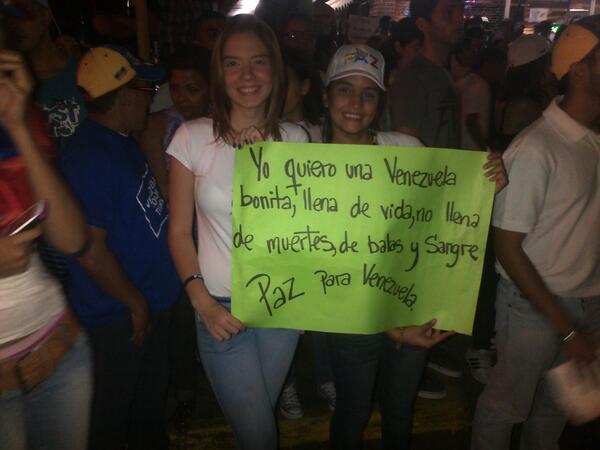 Yo quiero una Venezuela
bonita, llena de vida, no llena
de muertes, de balas y Sangre
Paz para Venezuela.
PAZ